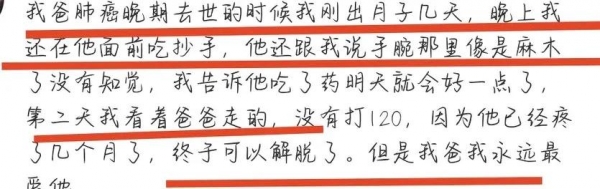 我爸肺癌晚期去世的时候我刚出月子几天，晚上我
还在他面前吃抄手，他还跟我说手腕那里像是麻木
了没有知觉，我告诉他吃了药明天就会好一点了，
第二天我看着爸爸走的，没有打120，因为他已经疼
了几个月了，终于可以解脱了。但是我爸我永远最
爱他